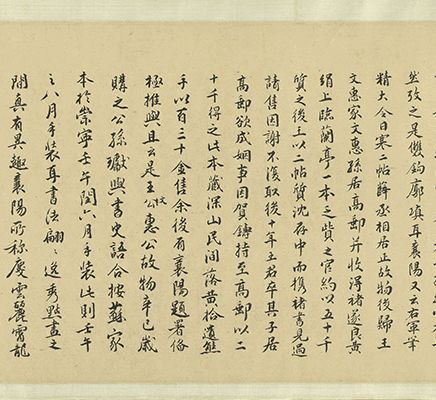 然攷之是雙鈎廓填耳襄陽又云右軍筆
精大令日寒二帖薛丞相居正故物後歸王
文惠家文惠孫居高郵并收得褚遂良黄
絹上臨蘭亭一本乏貲之官約以五十千
質之後王以二帖質沈存中而携褚書見過
請售因謝不復取後十年王君卒其子居
高郵欲成姻事因賀鑄持至高郵以二
十千得之此本藏深山民間落黄拾遺熊
手以百三十金售余後有襄陽題署備
極推與且云是王文惠公故物辛巳歲
購之公孫瓛與書史語合按蘇家
本於崇寧壬午閏六月手裝此則壬午
之八月手裝耳書法翩〻逸秀點畫之
間真有異趣襄陽所称慶雲麗霄龍